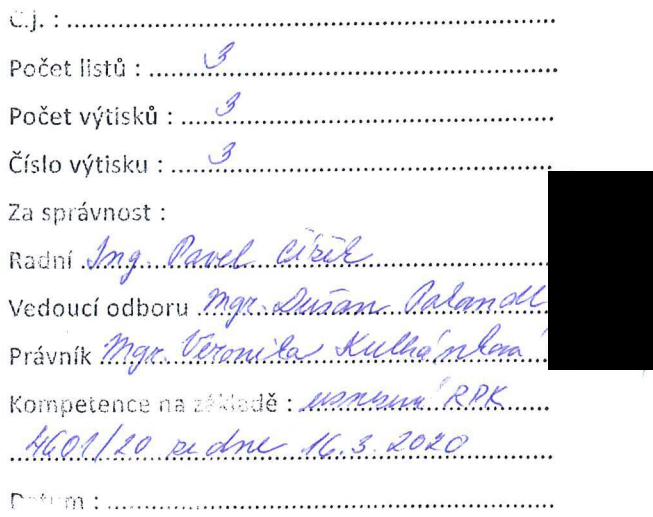 Č.j. :
Počet listů : 3
Počet výtisků : 3
Číslo výtisku : 3
Za správnost :
Radní Ing. Pavel Čížek
Vedoucí odboru Mgr. Dušan Palandl
Právník Mgr. Veronika Kulhánková
Kompetence na základě : usnesení RPK
4601/20 ze dne 16.3.2020
Datum :